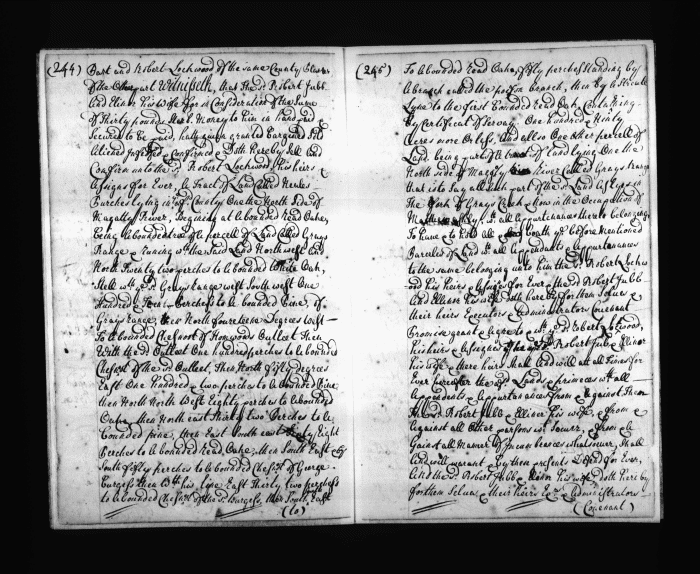 (244) Part and Robert Lockwood of the same County Planter
of the Other part Witnesseth, that the sd. Robert Jubb
And Elinor his wife for in Consideration of the Sume
of Thirty pounds Ster. Money to him in hand paid
Secured to be paid, hath given granted Bargained Sold
Aliened Infeofed Confirmed & Doth hereby Sell And
Confirm unto the sd. Robert Lockwood his heirs &
Assigns for Ever, A Tract of Land Called
Purches lying in County One the North Side of
Magatty River, Begining at a bounded Read Oake,
being a bounded tree of a percell of Land Called Grays
Range Runing wth. the Said Land North west And
North Twenty two perches to a bounded White Oak,
Still wth. sd. Grays Range west South west One
Hundred & Perches to a bounded Pine, of
Grays Range, then North fourteene Degrees West
To a bounded Chesnoot of Homwoods Outleet Then
With the sd Outleet One hundred perches to a bounded
Chesnt. of the sd Outleet, Then North fifty Degrees
East One hundred & two perches to a bounded Pine,
then North North West Eighty perches to a bounded
Oake, then North east Thirty two Perches to a
bounded pine, then East South east Eight
Perches to a bounded Read Oake, then South East &
South fifty perches to a bounded Chesnt. of George
Burgess then wth his Line East Thirty two perches
to a bounded Chesnt. of the sd. Burgess, then South East
(to)
(245) To a bounded Read Oake, fifty perches Standing by
a branch called the poison branch, then by a Streight
Lyne to the first bounded Read Oak, Containing
by Certificat of Servay One hundred & Ninty
Acres more Or less, And allso One other percell of
Land being part of a tract of Land lying One the
North Side of Magatty River Called Grays Range
that is to Say all such part of the sd Land As lyes in
The fork of Grays Creek Now in the Occupation of
wth. all Appurtenances thereto belonging
To have & to hold all both ye before mentioned
Parcels of Land wth. all Appendants & Appurtanances
to the same belonging unto him the sd. Robert Lockw
ood his heirs & Assignes for Ever & the sd Robert Jubb
And Ellinor his wife doth hereby for them Selves &
their heirs Executors & Administrators Covenant
Promise grant & Agree to & wth. ye sd Robert Lockwood,
his heirs & Assignes that the sd Robert Jubb & Ellinor
his wife & there heirs Shall And will att all Times for
Ever hereafter the sd Lands & primeces wth all
Appendants & Appurtanances from & Against Them
the sd. Robert Jubb & Ellinor his wife & from &
Against all Other persons wt. Soever, & from &
Gainst all Maner of Incumbrances whatsoever, Shall
And will warant & by these presents Defend for Ever,
And the sd. Robert Jubb & Elinor his wife doth hereby
for them Selves & their heirs Exrs. & Administrators
(Covenant)